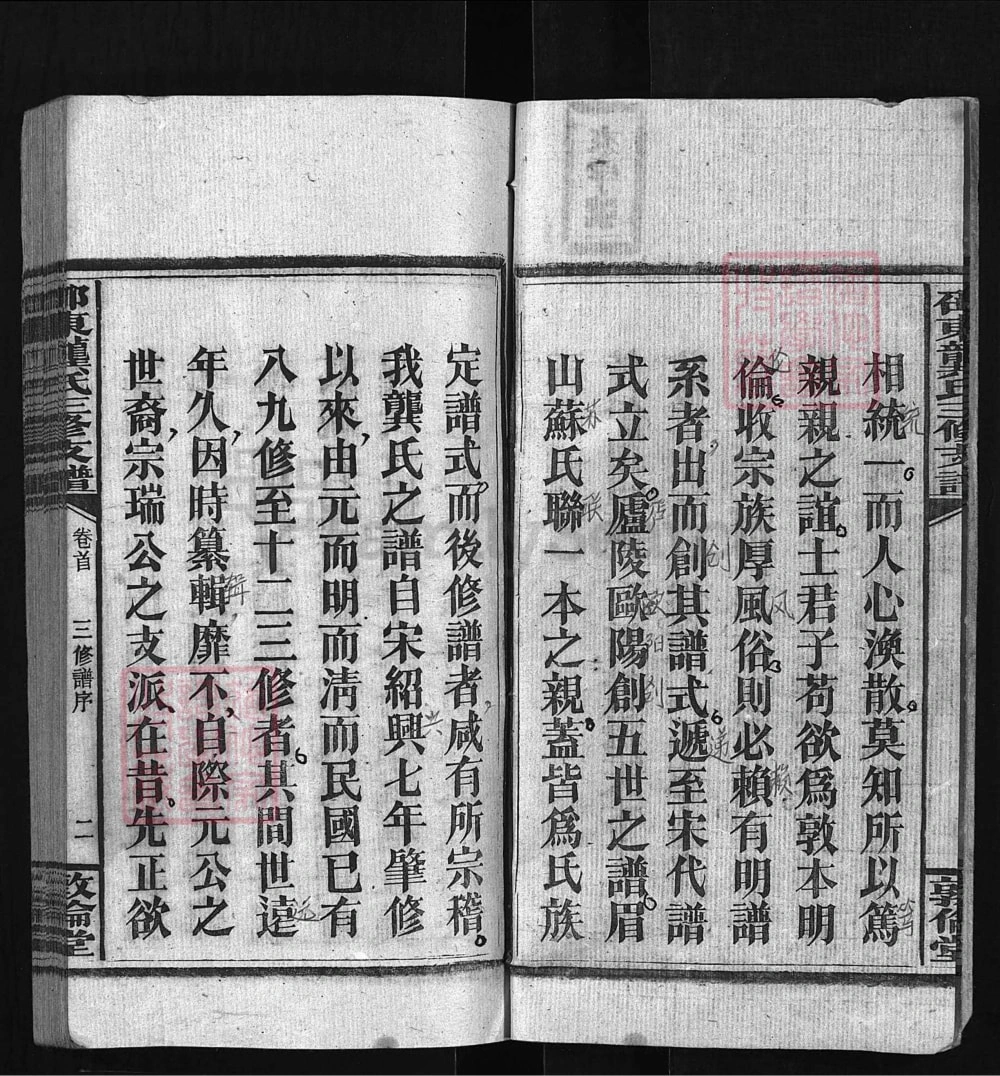 相統一而人心渙散莫知所以篤
親親之誼士君子苟欲爲敦本明
倫收宗族厚風俗則必賴有明譜
系者出而創其譜式遞至宋代譜
式立矣廬陵歐陽創五世之譜眉
山蘇氏聯一本之親蓋皆爲氏族
邵東龔氏三修支譜
敦倫堂
定譜式而後修譜者咸有所宗稽
我龔氏之譜自宋紹興七年肇修
以來由元而明而清而民國已有
八九修至十二三修者其間世遠
年久因時纂輯靡不自際元公之
世裔宗瑞公之支派在昔先正欲
邵東龔氏三修支譜
卷首
三修譜序
二
敦倫堂